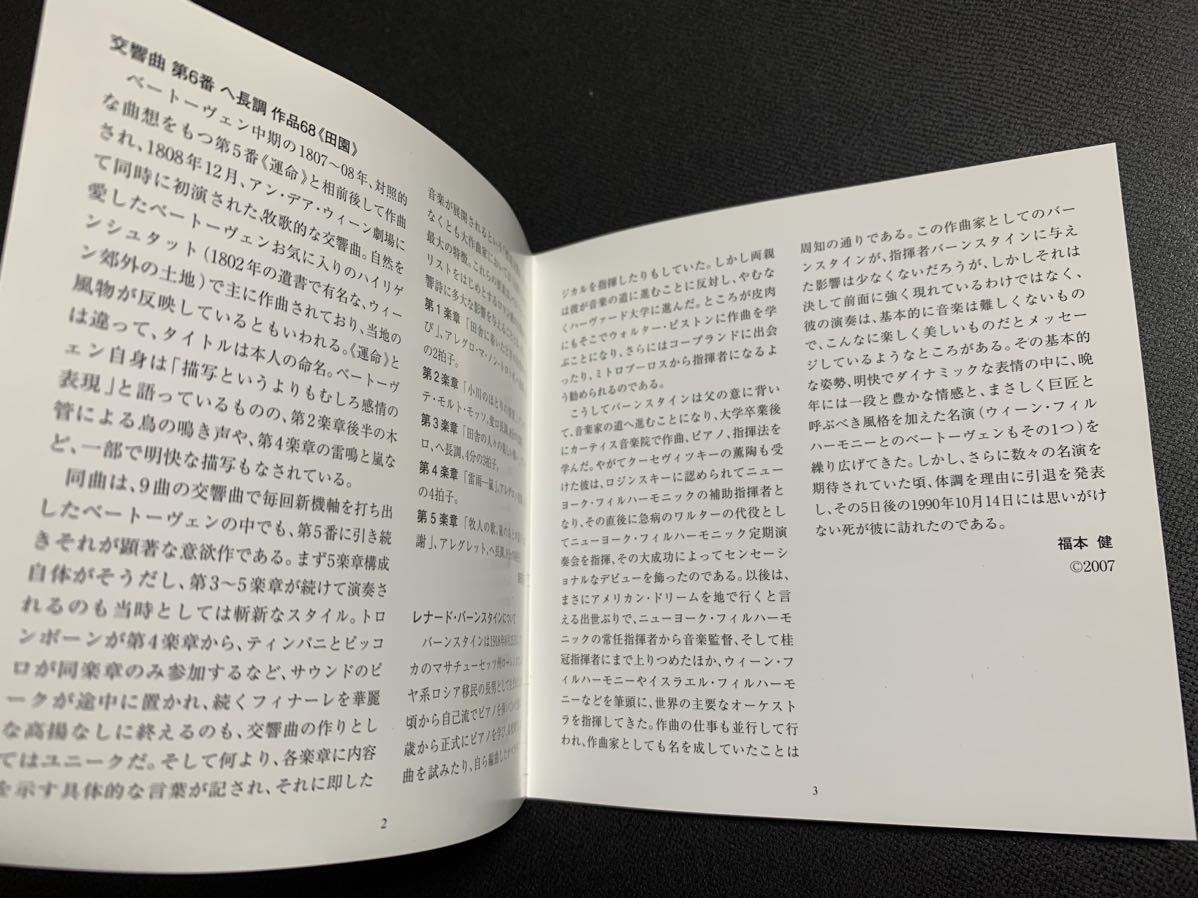 交響曲 第6番 ヘ長調 作品68《田園》
ベートーヴェン中期の1807～08年、対照的
な曲想をもつ第5番《運命》と相前後して作曲
され、1808年12月、アン・デア・ウィーン劇場に
て同時に初演された、牧歌的な交響曲。自然を
愛したベートーヴェンお気に入りのハイリゲ
ンシュタット（1802年の遺書で有名な、ウィー
ン郊外の土地）で主に作曲されており、当地の
風物が反映しているともいわれる。《運命》と
は違って、タイトルは本人の命名。ベートーヴ
ェン自身は「描写というよりもむしろ感情の
表現」と語っているものの、第2楽章後半の木
管による鳥の鳴き声や、第4楽章の雷鳴と嵐な
ど、一部で明快な描写もなされている。
同曲は、9曲の交響曲で毎回新機軸を打ち出
したベートーヴェンの中でも、第5番に引き続
きそれが顕著な意欲作である。まず5楽章構成
自体がそうだし、第3～5楽章が続けて演奏さ
れるのも当時としては斬新なスタイル。トロ
ンボーンが第4楽章から、ティンパニとピッコ
ロが同楽章のみ参加するなど、サウンドのピ
ークが途中に置かれ、続くフィナーレを華麗
な高揚なしに終えるのも、交響曲の作りとし
てはユニークだ。そして何より、各楽章に内容
を示す具体的な言葉が記され、それに即した
2
音楽が展開されるという
なくとも大作曲家において
最大の特徴。これらの
リストをはじめとする
響詩に多大な影響を与え
第1楽章「田舎に着いた
び」、アレグロ・マ・ノン・トロッポ
の2拍子。
第2楽章「小川のほとりの
テ・モルト・モッソ、変ロ長調
第3楽章「田舎の人々の
ロ、ヘ長調、4分の3拍子。
第4楽章「雷雨―嵐」、アレグロ
の4拍子。
第5楽章「牧人の歌。嵐の
謝」、アレグレット、ヘ長調
レナード・バーンスタインについて
バーンスタインは1918年8月25日
カのマサチューセッツ州ローレンス
ヤ系ロシア移民の長男として
頃から自己流でピアノを
歳から正式にピアノを学び
曲を試みたり、自ら編曲した
ジカルを指揮したりもしていた。しかし両親
は彼が音楽の道に進むことに反対し、やむな
くハーヴァード大学に進んだ。ところが皮肉
にもそこでウォルター・ピストンに作曲を学
ぶことになり、さらにはコープランドに出会
ったり、ミトロプーロスから指揮者になるよ
う勧められるのである。
こうしてバーンスタインは父の意に背い
て、音楽家の道へ進むことになり、大学卒業後
にカーティス音楽院で作曲、ピアノ、指揮法を
学んだ。やがてクーセヴィツキーの薫陶も受
けた彼は、ロジンスキーに認められてニュー
ヨーク・フィルハーモニックの補助指揮者と
なり、その直後に急病のワルターの代役とし
てニューヨーク・フィルハーモニック定期演
奏会を指揮、その大成功によってセンセーシ
ョナルなデビューを飾ったのである。以後は、
まさにアメリカン・ドリームを地で行くと言
える出世ぶりで、ニューヨーク・フィルハーモ
ニックの常任指揮者から音楽監督、そして桂
冠指揮者にまで上りつめたほか、ウィーン・フ
ィルハーモニーやイスラエル・フィルハーモ
ニーなどを筆頭に、世界の主要なオーケスト
ラを指揮してきた。作曲の仕事も並行して行
われ、作曲家としても名を成していたことは
周知の通りである。この作曲家としてのバー
ンスタインが、指揮者バーンスタインに与え
た影響は少なくないだろうが、しかしそれは
決して前面に強く現れているわけではなく、
彼の演奏は、基本的に音楽は難しくないもの
で、こんなに楽しく美しいものだとメッセー
ジしているようなところがある。その基本的
な姿勢、明快でダイナミックな表情の中に、晩
年には一段と豊かな情感と、まさしく巨匠と
呼ぶべき風格を加えた名演（ウィーン・フィル
ハーモニーとのベートーヴェンもその1つ）を
繰り広げてきた。しかし、さらに数々の名演を
期待されていた頃、体調を理由に引退を発表
し、その5日後の1990年10月14日には思いがけ
ない死が彼に訪れたのである。
福本 健
©2007
3